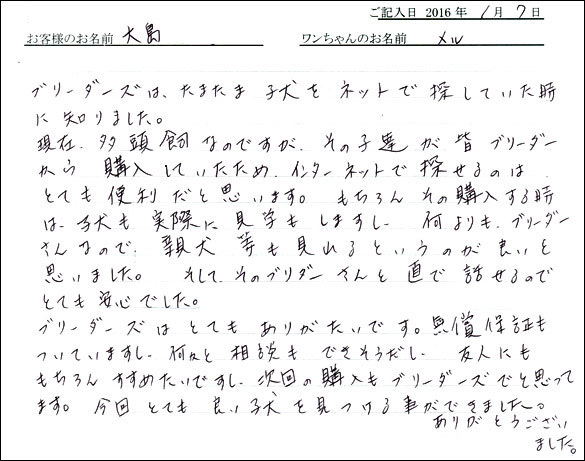 ご記入日 2016 年 1 月 7 日
お客様のお名前 大島 ワンちゃんのお名前 メル
ブリーダーズは、たまたま 子犬を ネットで 探していた時
に 知りました。
現在、多頭飼なのですが、その子達が皆 ブリーダー
から 購入していたため、インターネットで 探せるのは、
とても 便利だと思います。 もちろん その購入する時
は、子犬も 実際に 見学もしますし、 何よりも、ブリーダー
さんなので、 親犬 等も 見れるというのが 良いと
思いました。 そして、そのブリダー さんと 直で 話せるので
とても 安心でした。
ブリーダーズは とても ありがたいです。無償保証も
ついていますし、何かと 相談も できそうだし、 友人にも
もちろん すすめたいですし、次回の 購入も ブリーダーズでと思って
ます。 今回 とても 良い 子犬 を 見つける 事ができました〜。
ありがとうござい
ました。